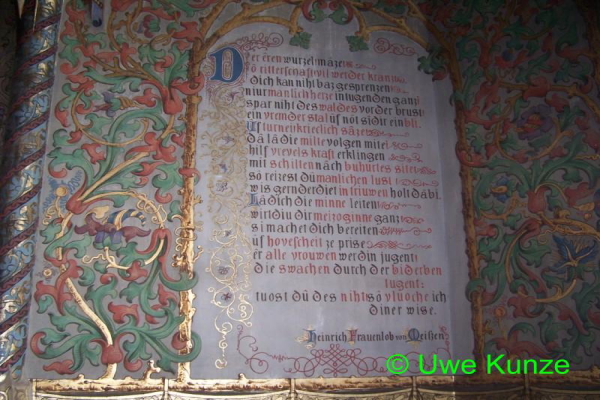 Der eren wurzel maze
o ritterschaft vil werder kranz
dich kan niht baz gesprenzen
niur manlich herze in tugenden ganz
spar niht des waldes vor der brust
ein vremder stal uf not sol dir ein
Uf turnei ritterlich
da la die milte volgen mite
hilf vrevels kraft erklingen
mit schilten nach buhurtes site
so reizest du manlichen lust
wis gernder diet in triuwen holt dabi.
La dich die minne leiten
wirt diu dir mezzoginne ganz
si dich bereiten
uf hovescheit ze prise
er alle vrouwen werdin jugent
die swachen durch der biderben
tugent:
tuost du des niht so vluoche ich
diner wise.
Heinrich Frauenlob von Meißen
© Uwe Kunze